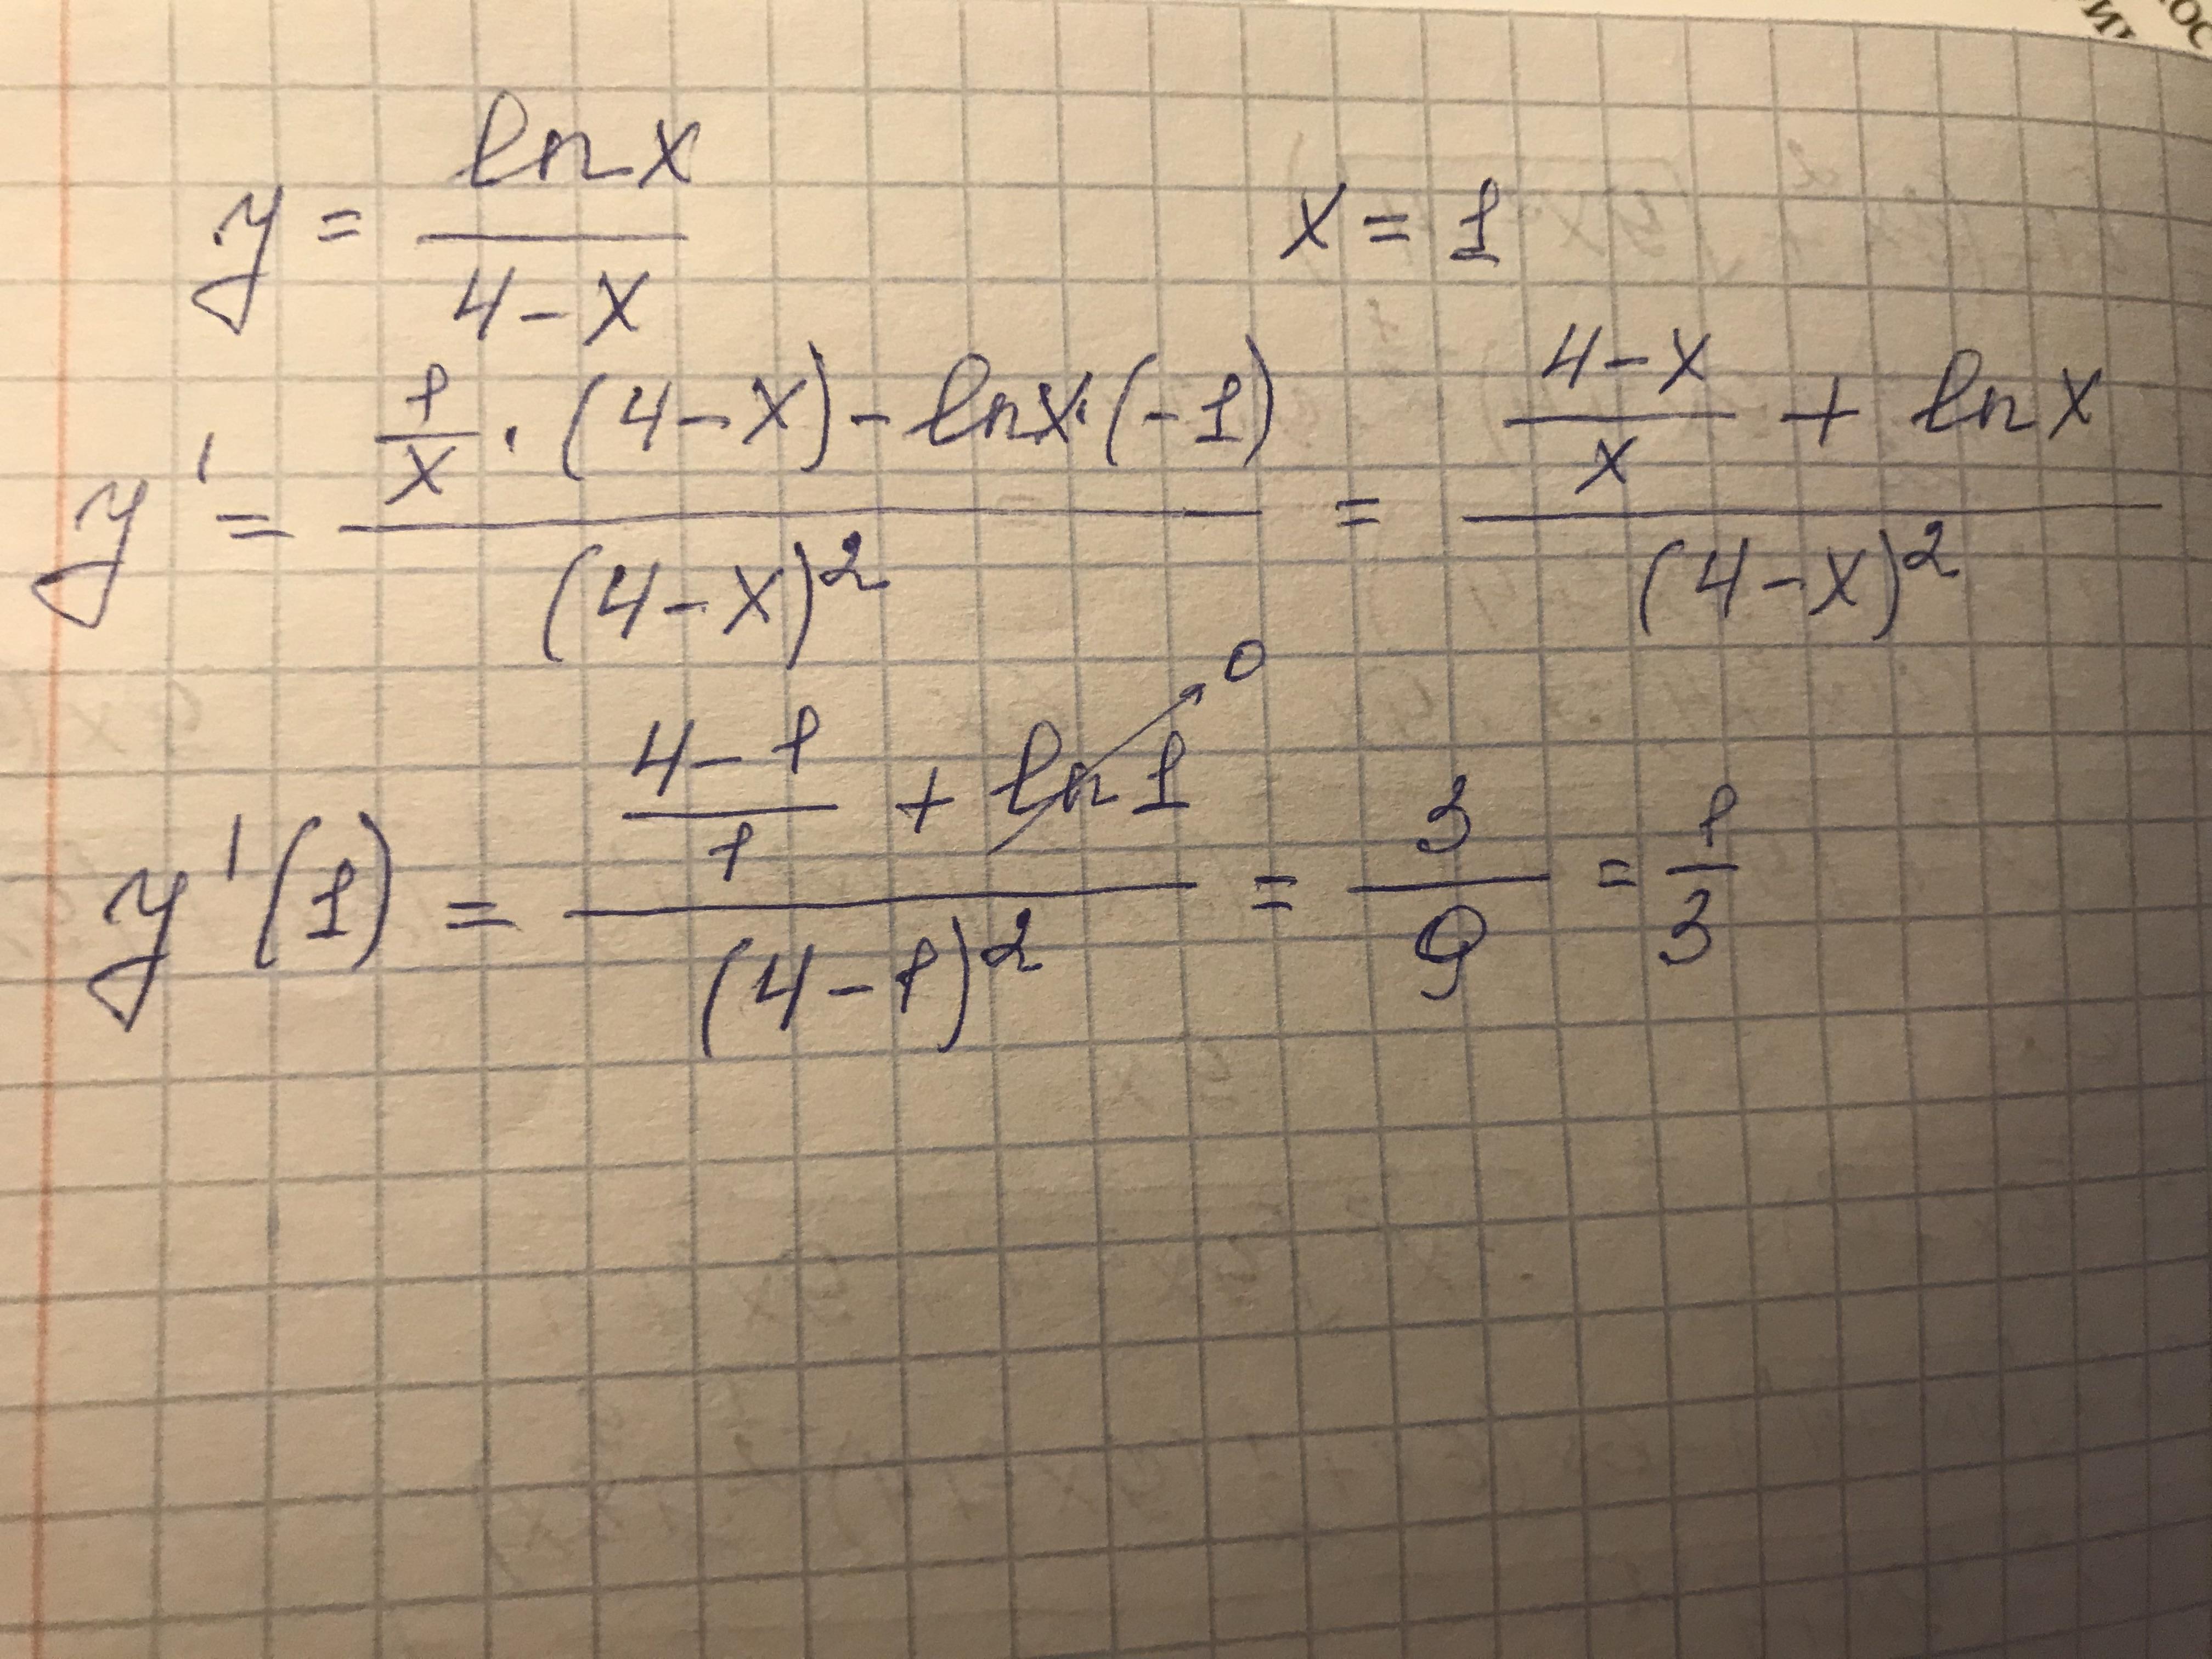 y = ln x / (4 - x)    x = 1
y' = (1/x · (4 - x) - ln x · (-1)) / (4 - x)² = ((4 - x)/x + ln x) / (4 - x)²
y'(1) = ((4 - 1)/1 + ln 1 → 0) / (4 - 1)² = 3/9 = 1/3